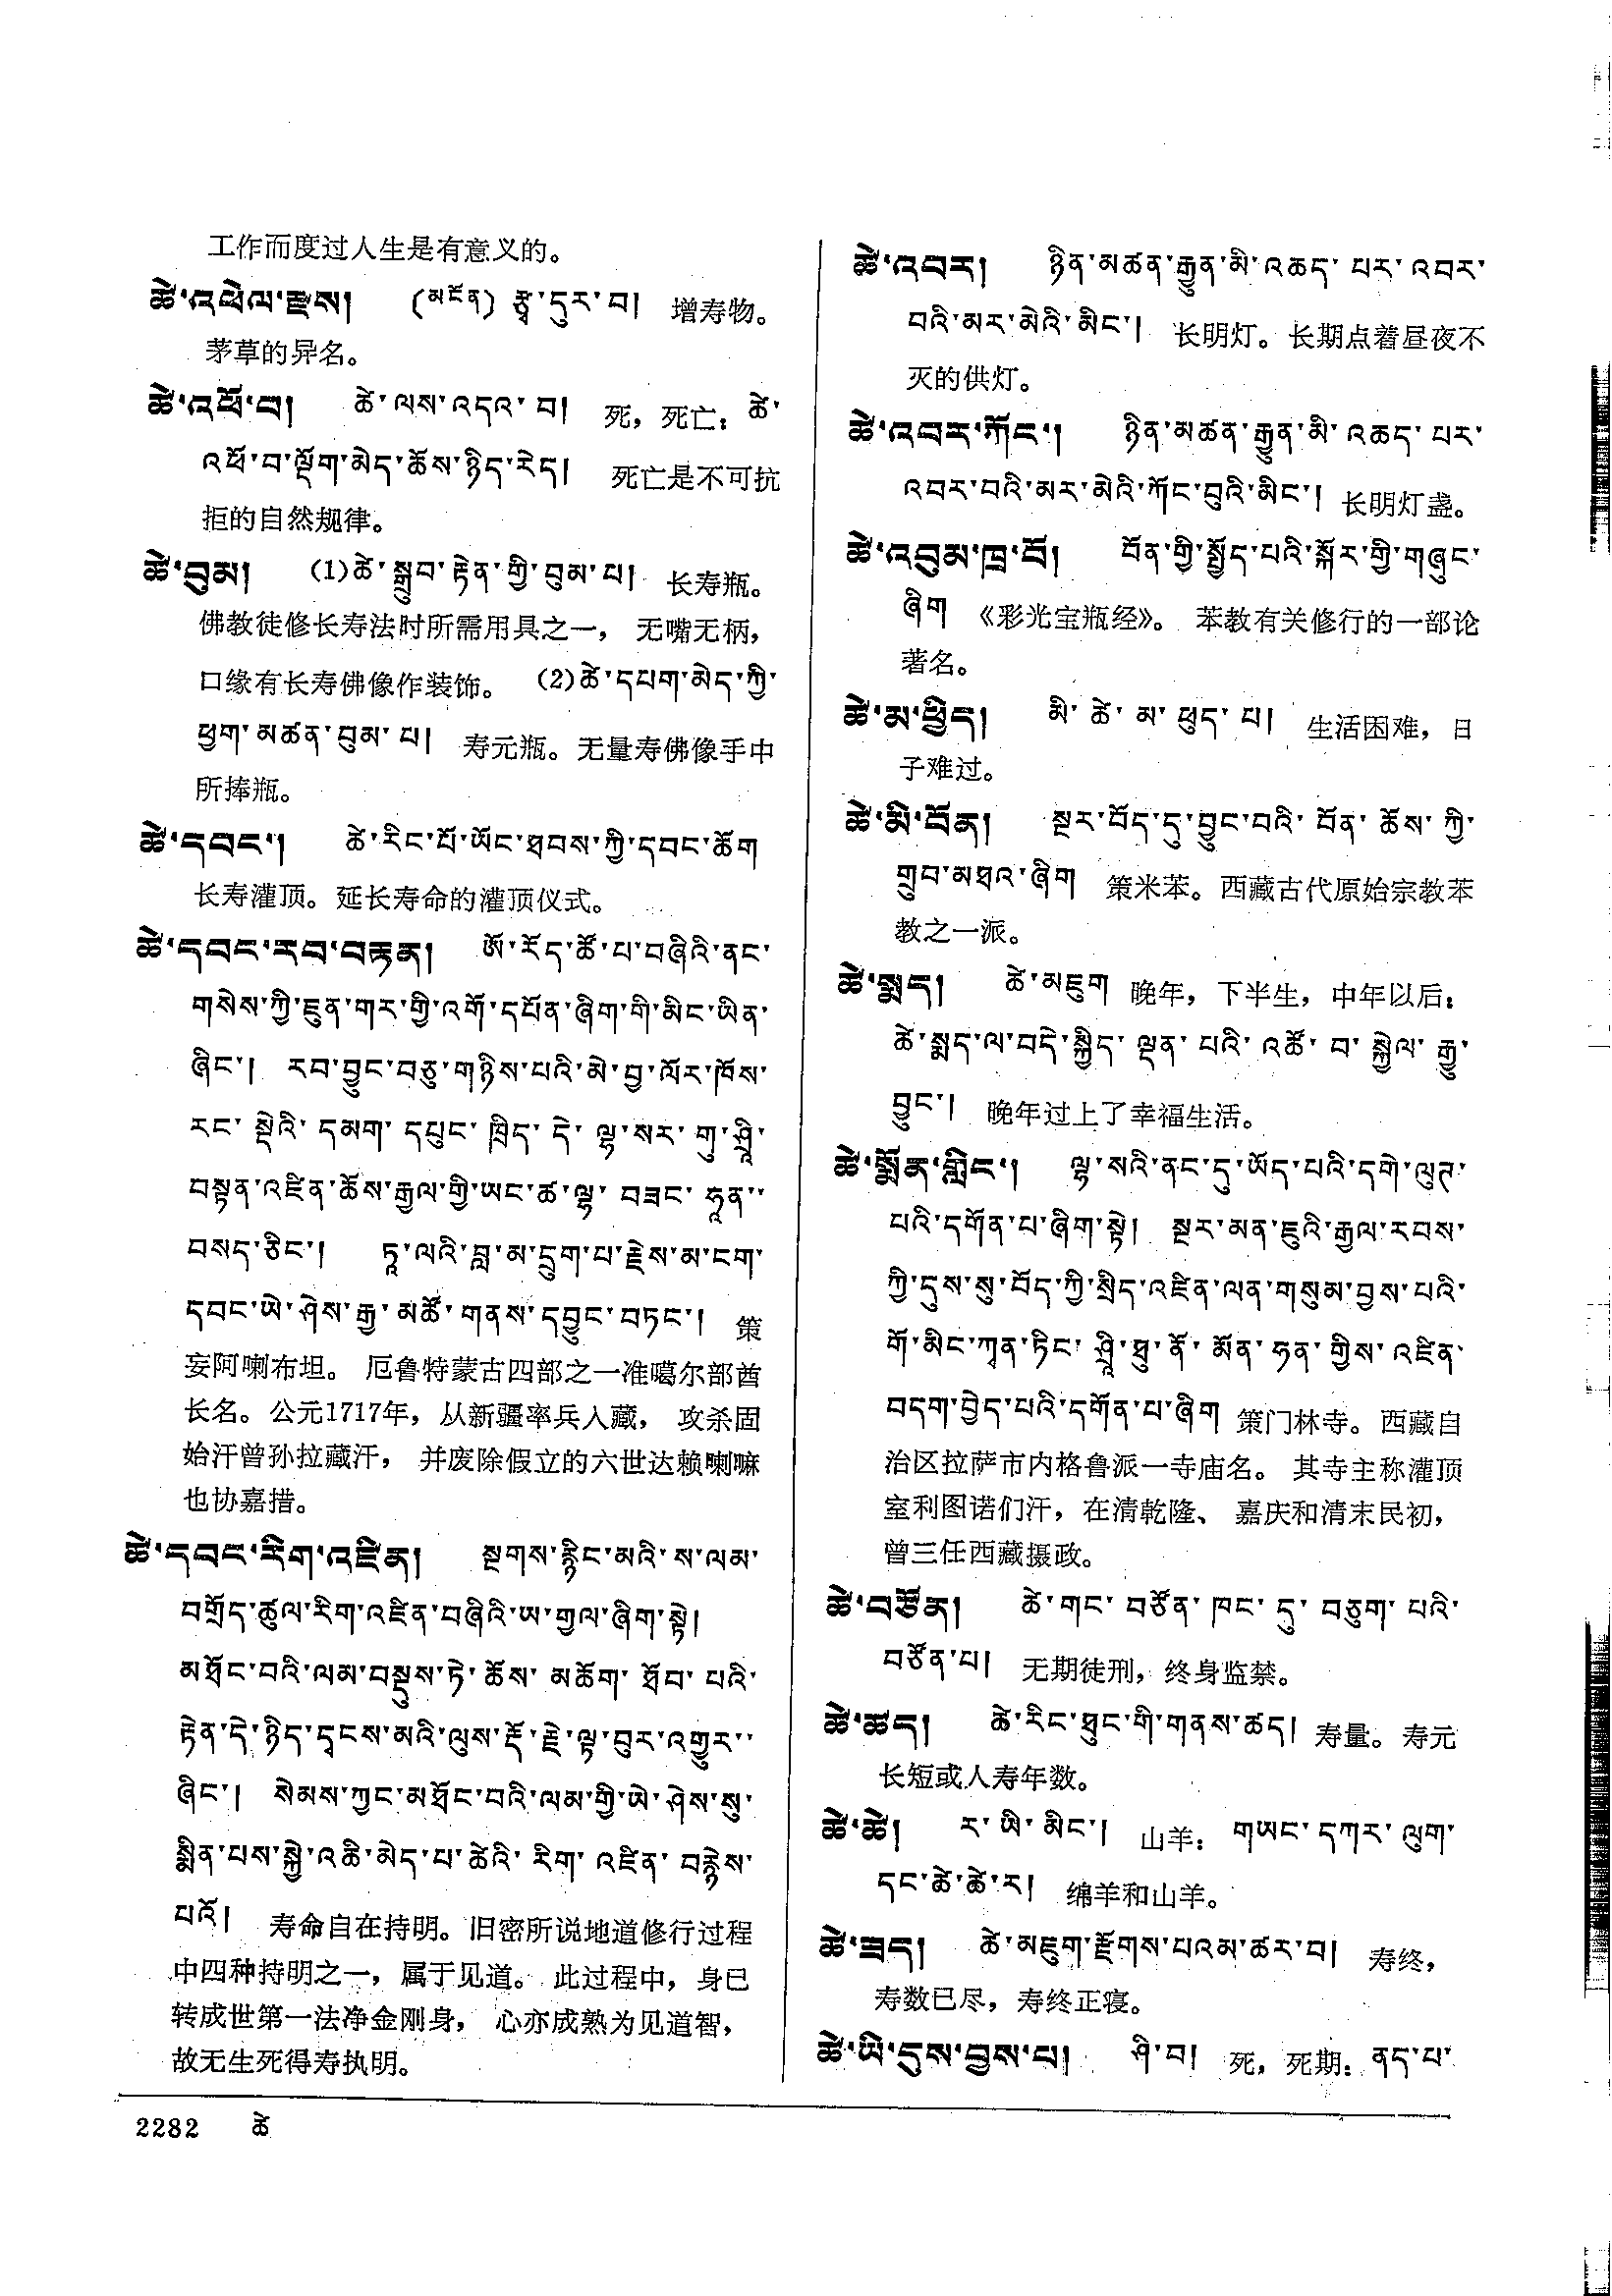 工作而度过人生是有意义的。
ཚེ་འཕེལ་རྫས། (མངོན) རྩྭ་དུར་བ། 增寿物。
茅草的异名。
ཚེ་འཕོ་བ། ཚེ་ལས་འདའ་བ། 死，死亡：ཚེ་
འཕོ་བ་ལྡོག་མེད་ཆོས་ཉིད་རེད། 死亡是不可抗
拒的自然规律。
ཚེ་བུམ། (1)ཚེ་སྒྲུབ་རྟེན་གྱི་བུམ་པ། 长寿瓶。
佛教徒修长寿法时所需用具之一，无嘴无柄，
口缘有长寿佛像作装饰。 (2)ཚེ་དཔག་མེད་ཀྱི་
ཕྱག་མཚན་བུམ་པ། 寿元瓶。无量寿佛像手中
所捧瓶。
ཚེ་དབང་། ཚེ་རིང་པོ་ཡོང་ཐབས་ཀྱི་དབང་ཆོག
长寿灌顶。延长寿命的灌顶仪式。
ཚེ་དབང་རབ་བརྟན། ཨོ་རོད་ཚོ་པ་བཞིའི་ནང་
གསེས་ཀྱི་ཇུན་གར་གྱི་འགོ་དཔོན་ཞིག་གི་མིང་ཡིན་
ཞིང་། རབ་བྱུང་བཅུ་གཉིས་པའི་མེ་བྱ་ལོར་ཁོས་
རང་སྡེའི་དམག་དཔུང་ཁྲིད་དེ་ལྷ་སར་གུ་ཤྲཱི་
བསྟན་འཛིན་ཆོས་རྒྱལ་གྱི་ཡང་ཚ་ལྷ་བཟང་ཧཱན་་
བསད་ཅིང་། ཏཱ་ལའི་བླ་མ་དྲུག་པ་རྗེས་མ་ངག་
དབང་ཡེ་ཤེས་རྒྱ་མཚོ་གནས་དབྱུང་བཏང་། 策
妄阿喇布坦。 厄鲁特蒙古四部之一准噶尔部酋
长名。公元1717年，从新疆率兵入藏， 攻杀固
始汗曾孙拉藏汗， 并废除假立的六世达赖喇嘛
也协嘉措。
ཚེ་དབང་རིག་འཛིན། སྔགས་རྙིང་མའི་ས་ལམ་
བགྲོད་ཚུལ་རིག་འཛིན་བཞིའི་ཡ་གྱལ་ཞིག་སྟེ།
མཐོང་བའི་ལམ་བསྡུས་ཏེ་ཆོས་མཆོག་ཐོབ་པའི་
རྟེན་དེ་ཉིད་དྭངས་མའི་ལུས་རྡོ་རྗེ་ལྟ་བུར་འགྱུར་་
ཞིང་། སེམས་ཀྱང་མཐོང་བའི་ལམ་གྱི་ཡེ་ཤེས་སུ་
སྨིན་པས་སྐྱེ་འཆི་མེད་པ་ཚེའི་རིག་འཛིན་བརྙེས་
པའོ། 寿命自在持明。旧密所说地道修行过程
中四种持明之一，属于见道。 此过程中，身已
转成世第一法净金刚身， 心亦成熟为见道智，
故无生死得寿执明。
ཚེ་འབར། ཉིན་མཚན་རྒྱུན་མི་འཆད་པར་འབར་
བའི་མར་མེའི་མིང་། 长明灯。长期点着昼夜不
灭的供灯。
ཚེ་འབར་ཀོང་། ཉིན་མཚན་རྒྱུན་མི་འཆད་པར་
འབར་བའི་མར་མེའི་ཀོང་བུའི་མིང་། 长明灯盏。
ཚེ་འབུམ་ཁྲ་བོ། བོན་གྱི་སྤྱོད་པའི་སྐོར་གྱི་གཞུང་
ཞིག 《彩光宝瓶经》。 苯教有关修行的一部论
著名。
ཚེ་མ་ཕྱིད། མི་ཚེ་མ་ཕྱུད་པ། 生活困难，日
子难过。
ཚེ་མི་བོན། སྔར་བོད་དུ་བྱུང་བའི་བོན་ཆོས་ཀྱི་
གྲུབ་མཐའ་ཞིག 策米苯。西藏古代原始宗教苯
教之一派。
ཚེ་སྨད། ཚེ་མཇུག 晚年，下半生，中年以后：
ཚེ་སྨད་ལ་བདེ་སྐྱིད་ལྡན་པའི་འཚོ་བ་སྐྱེལ་རྒྱུ་
བྱུང་། 晚年过上了幸福生活。
ཚེ་སྨོན་གླིང་། ལྷ་སའི་ནང་དུ་ཡོད་པའི་དགེ་ལུཊ་
པའི་དགོན་པ་ཞིག་སྟེ། སྔར་མན་ཇུའི་རྒྱལ་རབས་
ཀྱི་དུས་སུ་བོད་ཀྱི་སྲིད་འཛིན་ལན་གསུམ་བྱས་པའི་
གོ་མིང་ཀྭན་ཏིང་ཤྲཱི་ཐུ་ནོ་མོན་ཧན་གྱིས་འཛིན་
བདག་བྱེད་པའི་དགོན་པ་ཞིག 策门林寺。西藏自
治区拉萨市内格鲁派一寺庙名。 其寺主称灌顶
室利图诺们汗，在清乾隆、 嘉庆和清末民初，
曾三任西藏摄政。
ཚེ་བཙོན། ཚེ་གང་བཙོན་ཁང་དུ་བཅུག་པའི་
བཙོན་པ། 无期徒刑，终身监禁。
ཚེ་ཚད། ཚེ་རིང་ཐུང་གི་གནས་ཚད། 寿量。寿元
长短或人寿年数。
ཚེ་ཚེ། ར་ཡི་མིང་། 山羊：གཡང་དཀར་ལུག་
དང་ཚེ་ཚེ་ར། 绵羊和山羊。
ཚེ་ཟད། ཚེ་མཇུག་རྫོགས་པའམ་ཚར་བ། 寿终，
寿数已尽，寿终正寝。
ཚེ་ཡི་དུས་བྱས་པ། ཤི་བ། 死，死期：ནད་པ་
2282 ཚེ